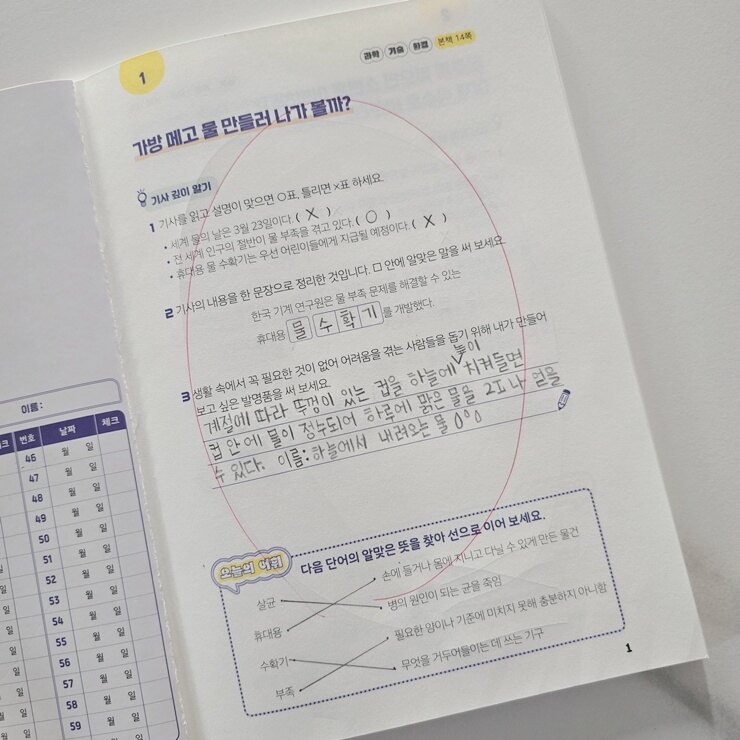 1
과학 기술 환경 본책 14쪽
가방 메고 물 만들러 나가 볼까?
기사 깊이 알기
1 기사를 읽고 설명이 맞으면 ○표, 틀리면 ×표 하세요.
• 세계 물의 날은 3월 23일이다. ( X )
• 전 세계 인구의 절반이 물 부족을 겪고 있다. ( O )
• 휴대용 물 수확기는 우선 어린이들에게 지급될 예정이다. ( X )
2 기사의 내용을 한 문장으로 정리한 것입니다. □ 안에 알맞은 말을 써 보세요.
한국 기계 연구원은 물 부족 문제를 해결할 수 있는
휴대용 물 수 확 기 를 개발했다.
3 생활 속에서 꼭 필요한 것이 없어 어려움을 겪는 사람들을 돕기 위해 내가 만들어
보고 싶은 발명품을 써 보세요.
높이
계절에 따라 뚜껑이 있는 컵을 하늘에 치켜들면
컵 안에 물이 정수되어 하루에 맑은 물을 2L나 얻을
수 있다. 이름: 하늘에서 내려오는 물
오늘의 어휘
다음 단어의 알맞은 뜻을 찾아 선으로 이어 보세요.
살균
손에 들거나 몸에 지니고 다닐 수 있게 만든 물건
휴대용
병의 원인이 되는 균을 죽임
수확기
필요한 양이나 기준에 미치지 못해 충분하지 아니함
부족
무엇을 거두어들이는 데 쓰는 기구
1
이름:
체크 번호 날짜 체크
46 월 일
47 월 일
48 월 일
49 월 일
50 월 일
51 월 일
52 월 일
53 월 일
54 월 일
55 월 일
56 월 일
57 월 일
58 월 일
59 월 일